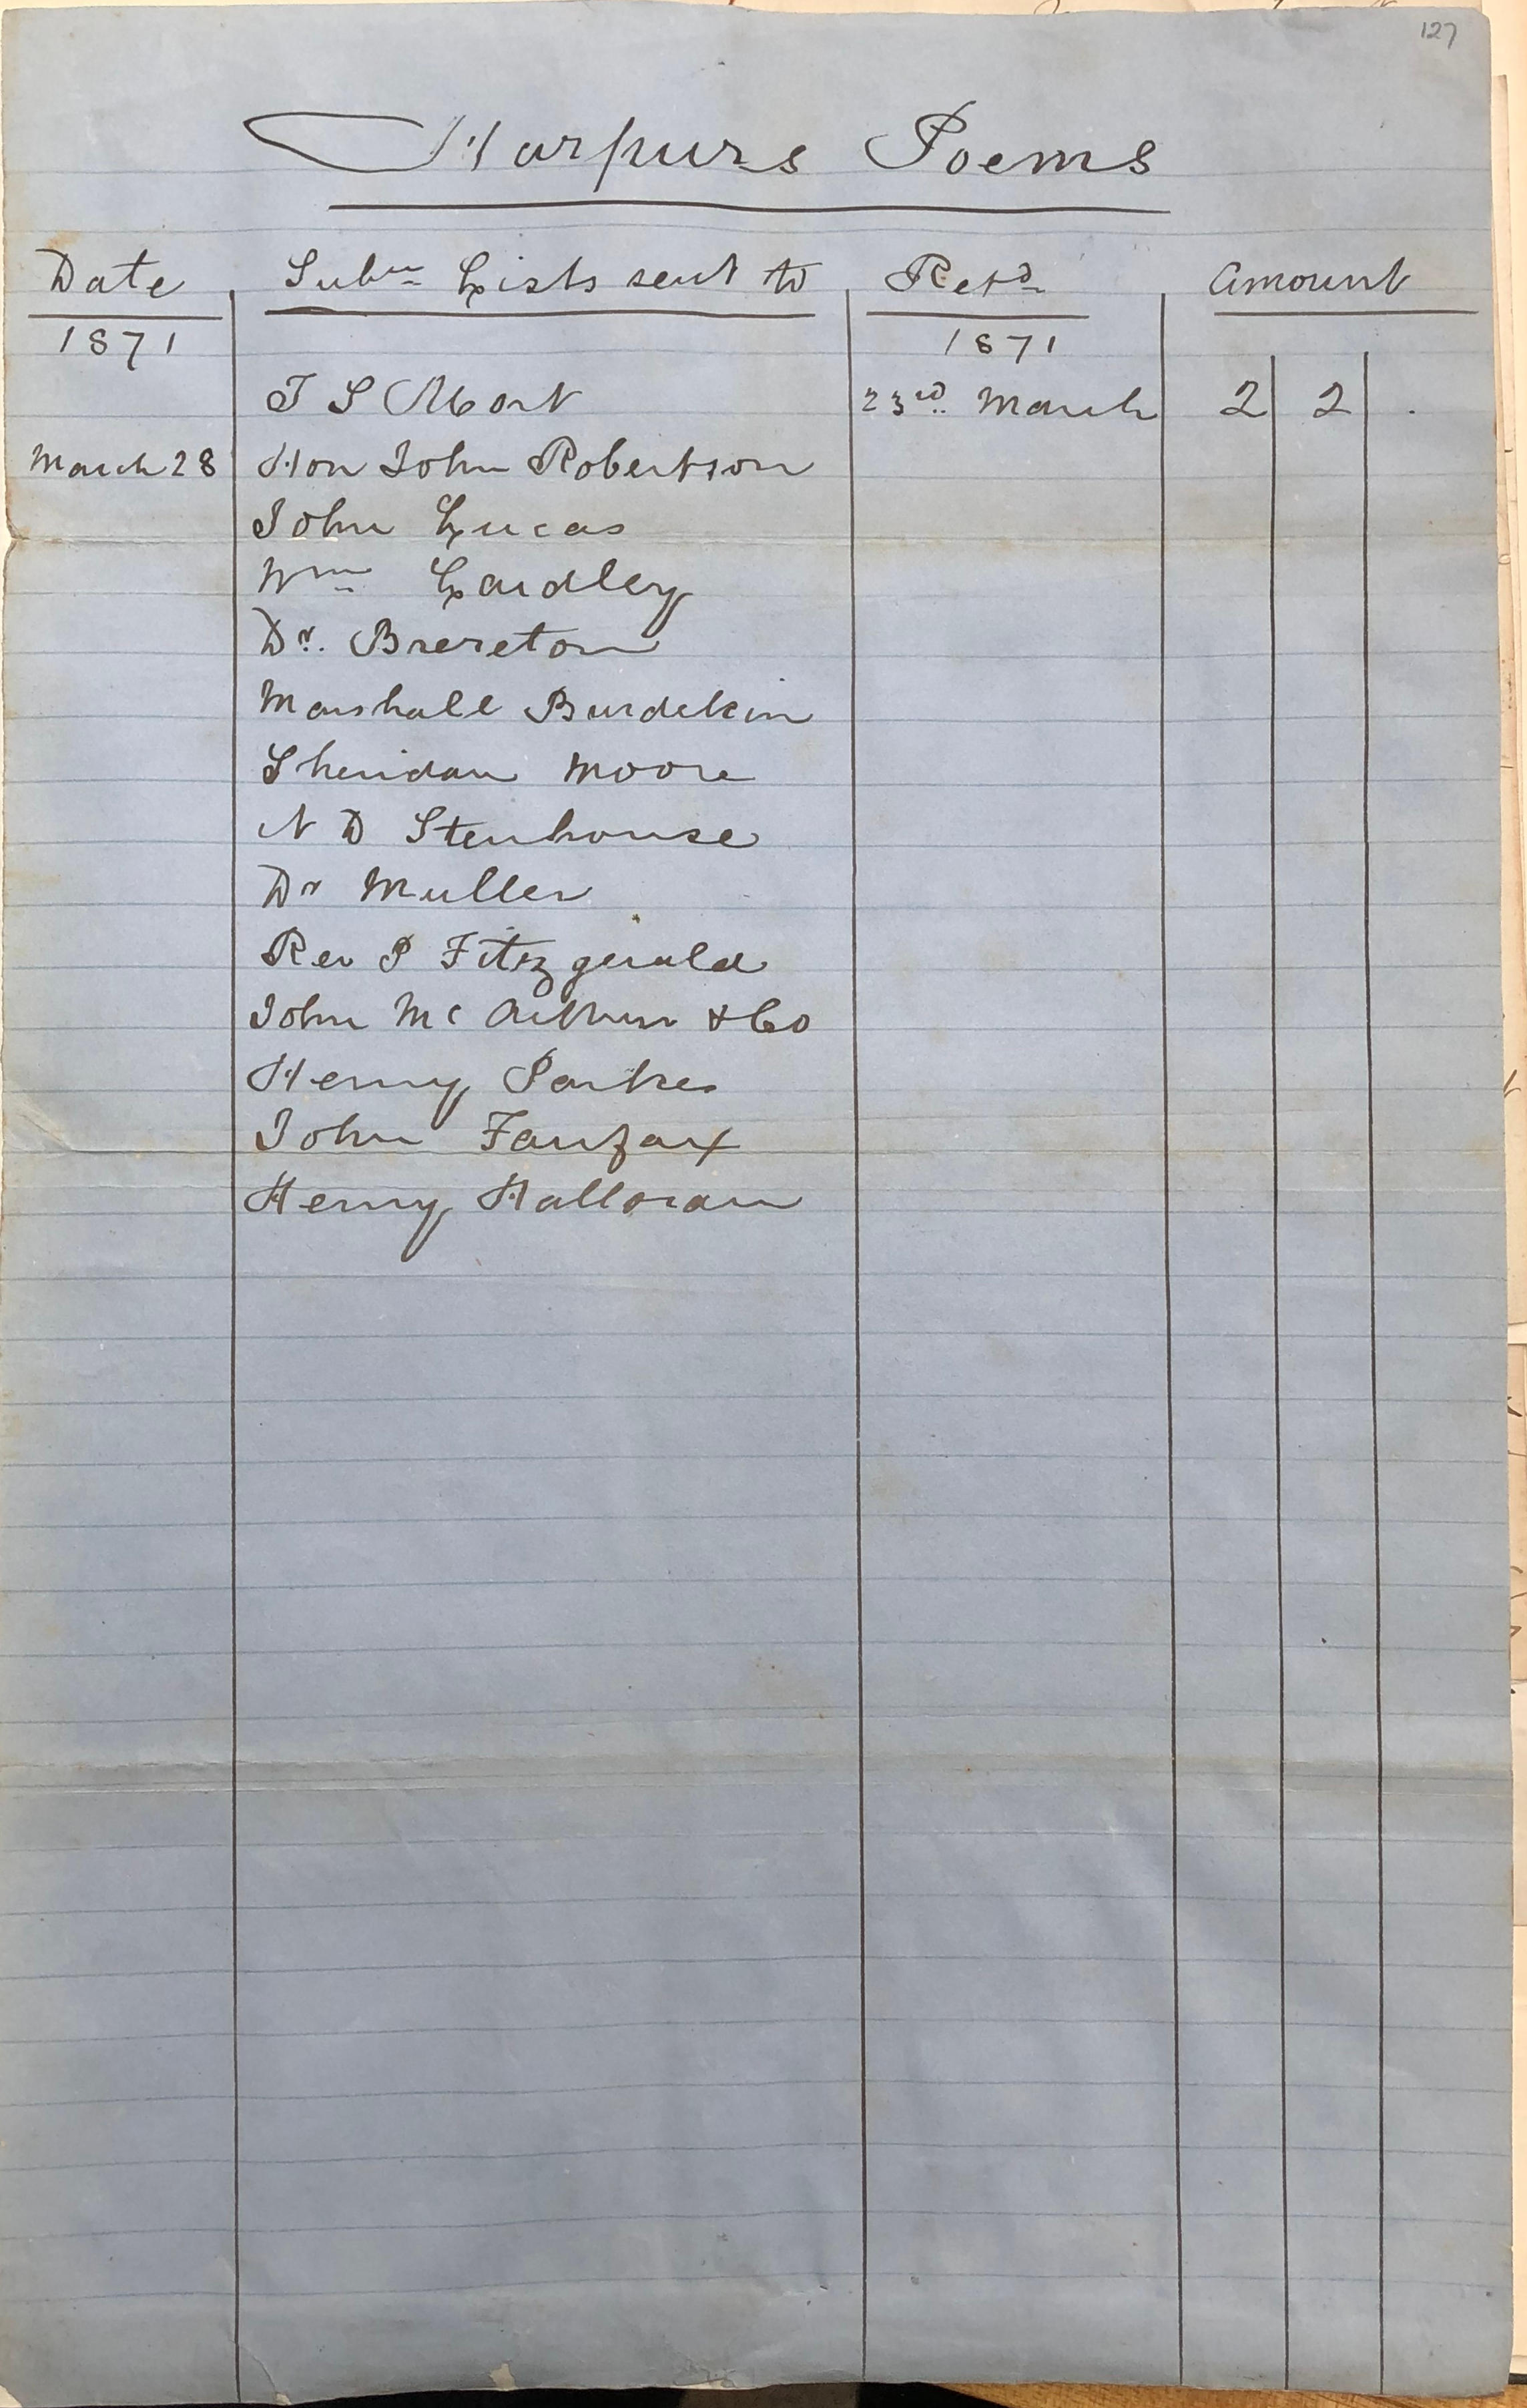 127
Harpurs Poems
Date Subn Lists sent to Retd Amount
1871 1871
T S Mort 23rd March 2 2 .
March 28 Hon John Robertson
John Lucas
Wm Lardley
Dr. Brereton
Marshall Burdekin
Sheridan Moore
N D Stenhouse
Dr Muller
Rev P Fitzgerald
John Mc Arthur & Co
Henry Parkes
John Fairfax
Henry Halloran